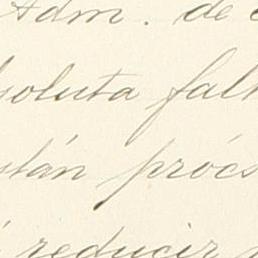 Adm. de
absoluta falt
stán prócs
á reducir